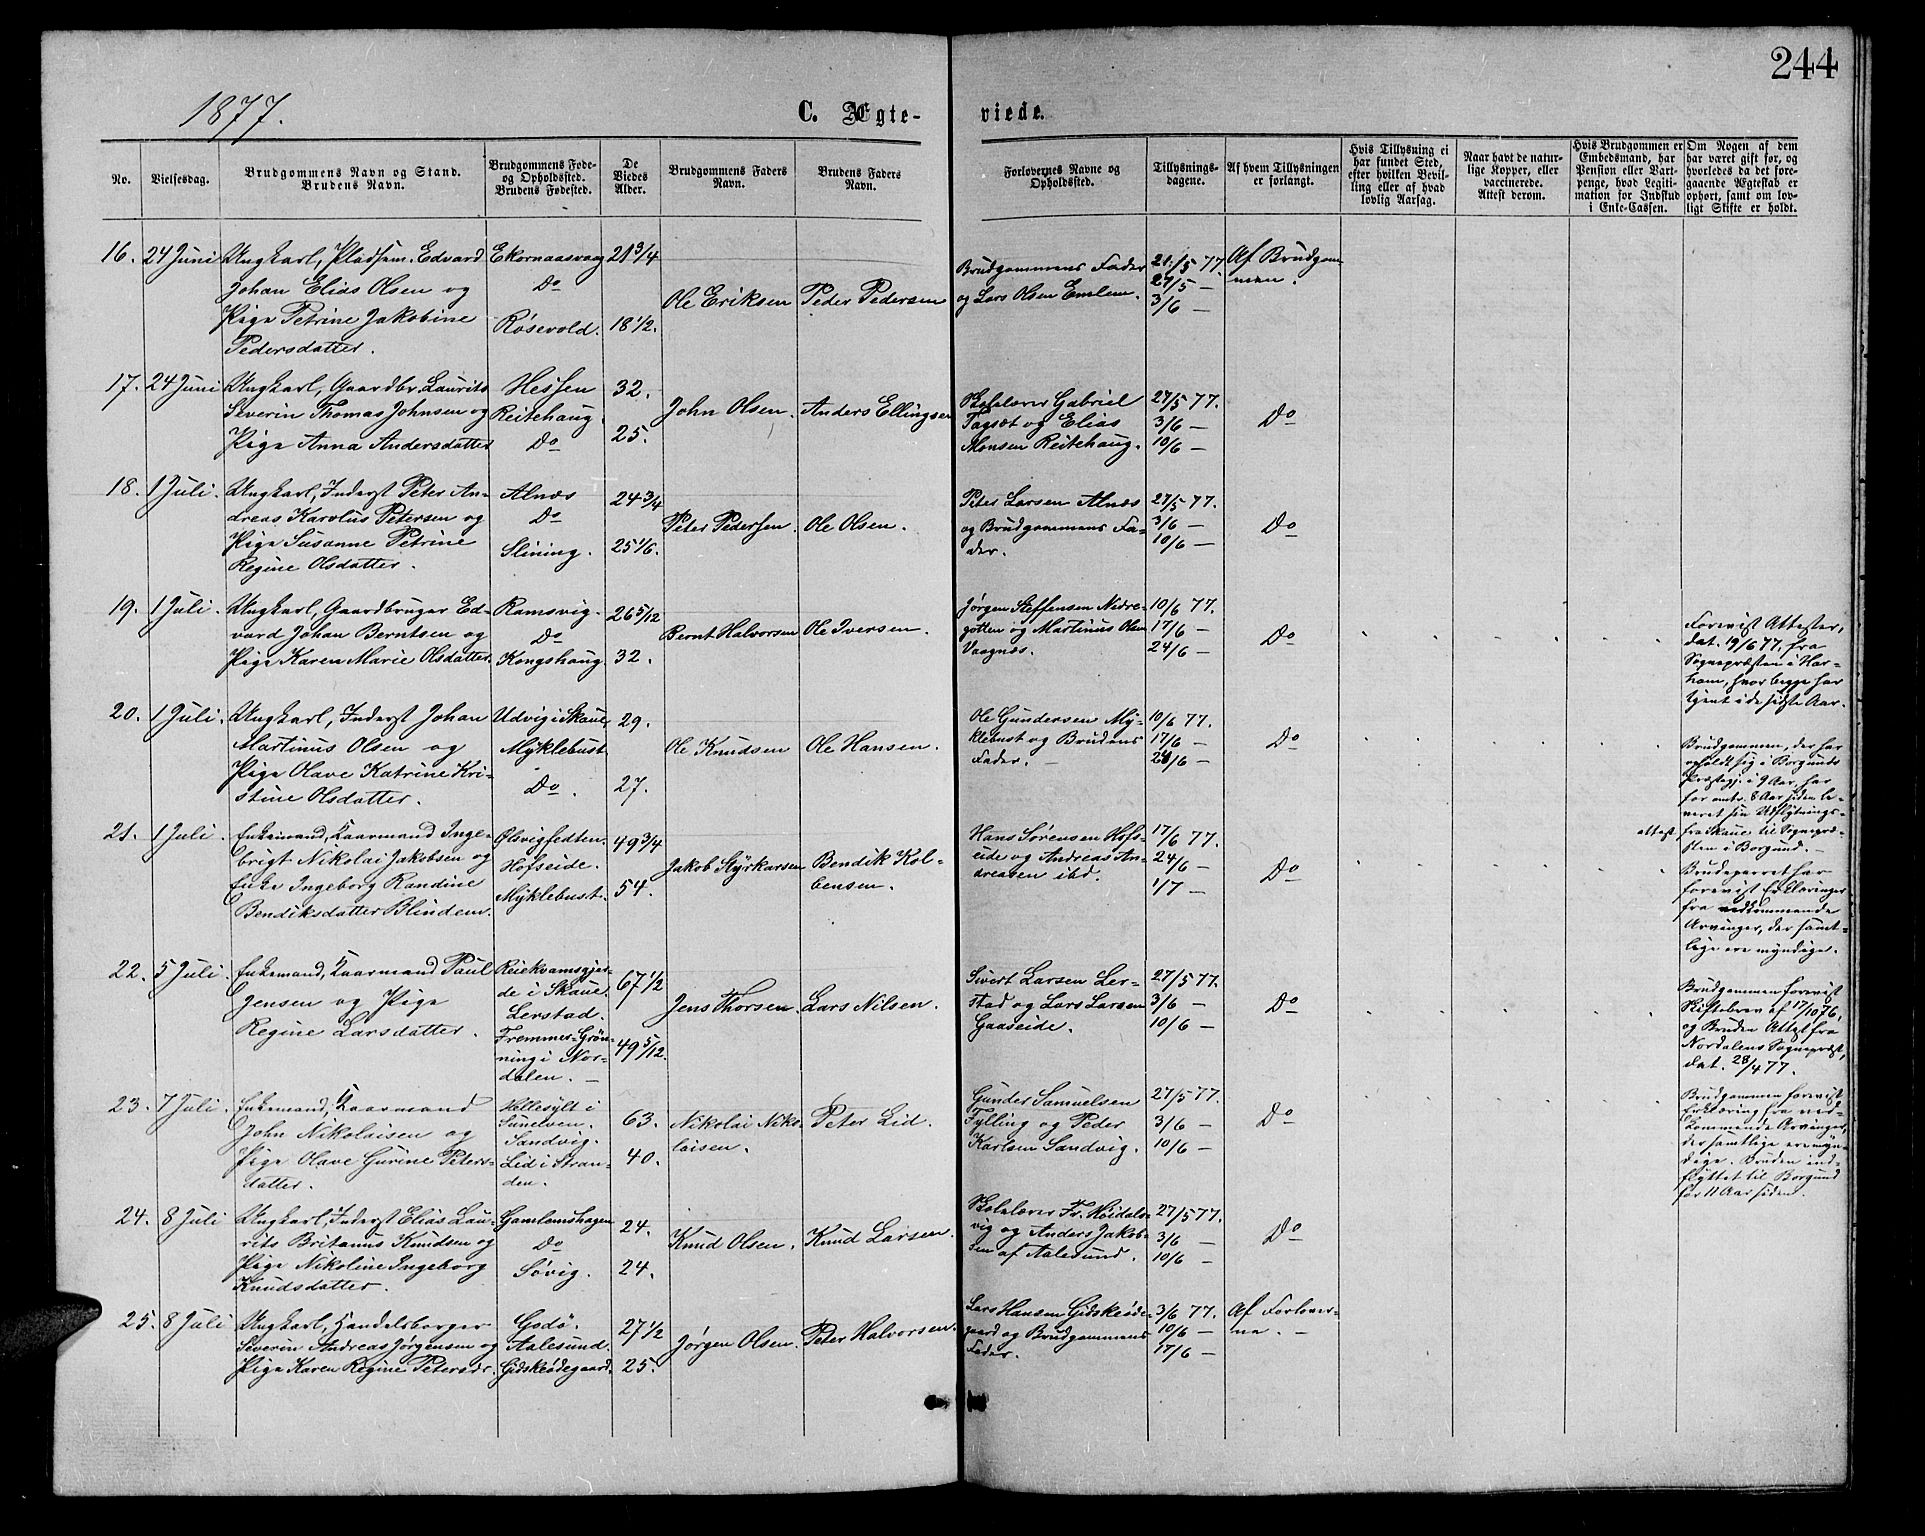 244
1877.
C. Ægte-
viede.
No.
Vielsesdag.
Brudgommens Navn og Stand.
Brudens Navn.
Brudgommens Føde-
og Opholdssted.
Brudens Fødested.
De
Viedes
Alder.
Brudgommens Faders
Navn.
Brudens Faders
Navn.
Forlovernes Navne og
Opholdssted.
Tillysnings-
dagene.
Af hvem Tillysningen
er forlangt.
Hvis Tillysning ei
har fundet Sted,
efter hvilken Bevil-
ling eller af hvad
lovlig Aarsag.
Naar havt de natur-
lige Kopper, eller
vaccinerede.
Attest derom.
Hvis Brudgommen er
Embedsmand, har
Pension eller Vart-
penge, hvad Legiti-
mation for Indskud
i Enke-Cassen.
Om Nogen af dem
har været gift før, og
hvorledes da det fore-
gaaende Ægteskab er
ophørt, samt om lov-
ligt Skifte er holdt.
16. 24 Juni
Ungkarl, Pladsem. Edvard
Johan Elias Olsen og
Pige Petrine Jakobine
Pedersdatter.
Ekornaasvaag
Do
Røsevold.
21 3/4
18 1/2.
Ole Eriksen
Peder Pedersen
Brudgommens Fader
og Lars Olsen Emlem.
21/5 77.
27/5 —
3/6 —
Af Brudgom-
men.
17. 24 Juni
Ungkarl, Gaardbr. Laurits
Severin Thomas Johnsen og
Pige Anna Andersdatter
Hessen
Reitehaug.
Do
32.
25.
John Olsen.
Anders Ellingsen
Skolelærer Gabriel
Fagsæt og Elias
Monsen Reitehaug.
27/5 77.
3/6 —
10/6 —
Do
18. 1 Juli.
Ungkarl, Inderst Peter An-
dreas Karolus Petersen og
Pige Susanne Petrine
Regine Olsdatter.
Alnæs
Do
Slining.
24 3/4
25 1/6.
Peter Pedersen.
Ole Olsen.
Peter Larsen Alnæs
og Brudgommens Fa-
der.
27/5 77.
3/6 —
10/6 —
Do
19. 1 Juli.
Ungkarl, Gaardbruger Ed-
vard Johan Berntsen og
Pige Karen Marie Olsdatter
Ramsvig.
Do
Kongshaug
26 5/12
32.
Bernt Halvorsen
Ole Iversen.
Jørgen Steffensen Nedre-
gotten og Martinus Olsen
Vaagnæs.
10/6 77.
17/6 —
24/6 —
Do
Forevist Attester,
dat. 19/6 77, fra
Sognepræsten i Har-
ham, hvor begge har
tjent i de sidste Aar.
20. 1 Juli.
Ungkarl, Inderst Johan
Martinus Olsen og
Pige Olave Katrine Kri-
stine Olsdatter.
Udvig i Skaue
Myklebust.
Do.
29.
27.
Ole Knudsen
Ole Hansen.
Ole Gundersen My-
klebust og Brudens
Fader.
10/6 77.
17/6 —
24/6 —
Do
Brudgommen, der har
opholdt sig i Borgunds
Præstegj. i 9 Aar, har
for omtr. 8 Aar siden le-
veret sin Udflytnings-
attest fra Skaue til Sognepræ-
sten i Borgund.
21. 1 Juli.
Enkemand, Kaarmand Inge-
brigt Nikolai Jakobsen og
Enke Ingeborg Randine
Bendiksdatter Blindem.
Ølsvigfedten.
Hofseide.
Myklebust.
49 3/4
54.
Jakob Styrkarsen
Bendik Kol-
bensen.
Hans Sørensen Hofs-
eide og Andreas An-
dreasen ibd.
17/6 77.
24/6 —
1/7 —
Do
Brudeparret har
forevist Erklæringer
fra vedkommende
Arvinger, der samt-
lige ere myndige.
22. 5 Juli.
Enkemand, Kaarmand Paul
Jensen og Pige
Regine Larsdatter.
Reiekvamsgjer-
de i Skaue.
Lerstad.
Fremmer-Grøn-
ning i Nor-
dalen.
67 1/2
49 5/12.
Jens Thorsen.
Lars Nilsen.
Sivert Larsen Ler-
stad og Lars Larsen
Gaaseide.
27/5 77.
3/6 —
10/6 —
Do
Brudgommen forevist
Skiftebrev af 17/10 76,
og Bruden Attest fra
Nordalens Sognepræst,
dat. 28/4 77.
23. 7 Juli.
Enkemand, Kaarmand
John Nikolaisen og
Pige Olave Gurine Peters-
datter.
Hellesylt i
Sunelven.
Sandvig.
Lid i Stran-
den.
63.
40.
Nikolai Niko-
laisen.
Peter Lid.
Gunder Samuelsen
Fylling og Peder
Karlsen Sandvig.
27/5 77.
3/6 —
10/6 —
Do
Brudgommen forevist
Erklæring fra ved-
kommende Arvinger,
der samtlige ere myn-
dige. Bruden ind-
flyttet til Borgund
for 11 Aar siden.
24. 8 Juli
Ungkarl, Inderst Elias Lau-
rits Britanus Knudsen og
Pige Nikoline Ingeborg
Knudsdatter.
Gamlemshagen
Do
Søvig.
24.
24.
Knud Olsen.
Knud Larsen.
Skolelærer Fr. Høidals-
vig og Anders Jakob-
sen af Aalesund.
27/5 77.
3/6 —
10/6 —
Do
25. 8 Juli
Ungkarl, Handelsborger
Severin Andreas Jørgensen og
Pige Karen Regine Petersdr.
Godø.
Aalesund.
Gidskeødegaard.
27 1/2
25.
Jørgen Olsen.
Peter Halvorsen.
Lars Hansen Gidskeøde-
gaard og Brudgommens
Fader.
3/6 77.
10/6 —
17/6 —
Af Forlover-
ne. —